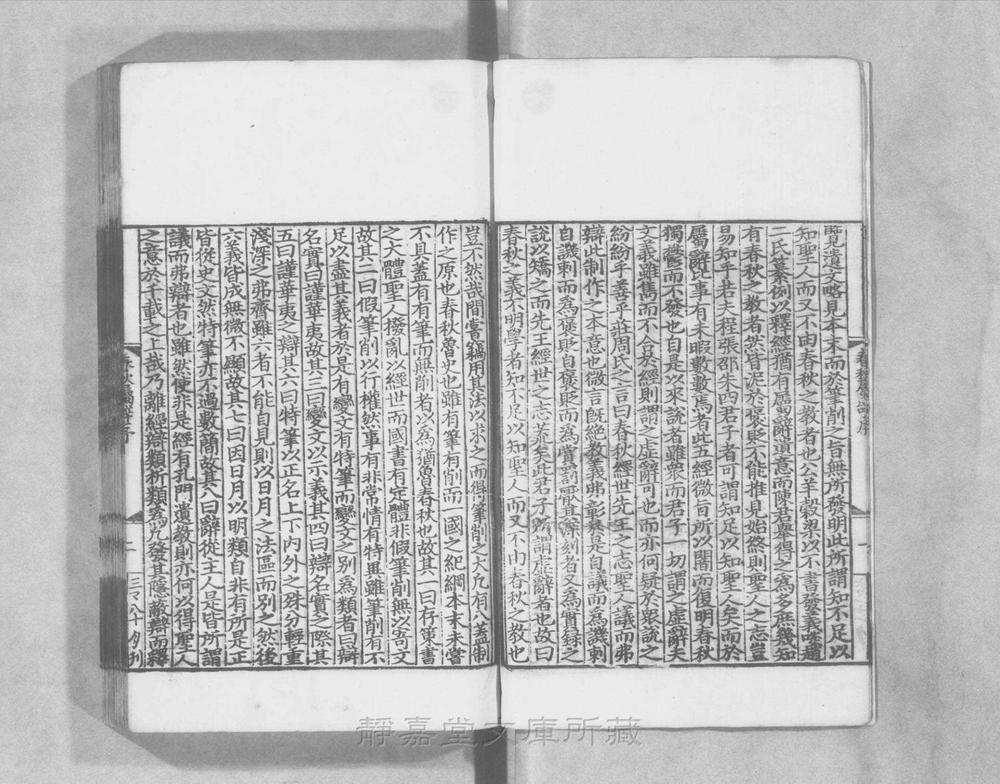 覽遺文略見本末而於筆削之旨無所發明此所謂知不足以
知聖人而又不由春秋之教者也公羊穀梁以不書發義啖趙
二氏纂例以釋經猶有屬辭遺意而陳君舉得之爲多庶幾知
有春秋之教者然皆泥於褒貶不能推見始終則聖人之志豈
易知乎若夫程張邵朱四君子者可謂知足以知聖人矣而於
屬辭比事有未暇數數焉者此五經微旨所以闇而復明春秋
獨鬱而不發也自是以來說者雖衆而君子一切謂之虛辭夫
文義雖雋而不合於經則謂之虛辭可也而亦何疑於衆說之
紛紛乎善乎莊周氏之言曰春秋經世先王之志聖人議而弗
辯此制作之本意也微言旣絶教義弗彰於是自議而爲譏刺
自譏刺而爲褒貶自褒貶而爲賞罰厭其深刻者又爲實錄之
說以矯之而先王經世之志荒矣此君子所謂虛辭者也故曰
春秋之義不明學者知不足以知聖人而又不由春秋之教也
豈不然哉間嘗竊用其法以求之而得筆削之大凡有八蓋制
作之原也春秋魯史也雖有筆有削而一國之紀綱本末未嘗
不具蓋有有筆而無削者以爲猶魯春秋也故其一曰存策書
之大體聖人撥亂以經世而國書有定體非假筆削無以寄文
故其二曰假筆削以行權然事有非常情有特異雖筆削有不
足以盡其義者於是有變文有特筆而變文之別爲類者曰辯
名實曰謹華夷故其三曰變文以示義其四曰辯名實之際其
五曰謹華夷之辯其六曰特筆以正名上下內外之殊分輕重
淺深之弗齊雖六者不能自見則以日月之法區而別之然後
六義皆成無微不顯故其七曰因日月以明類自非有所是正
皆從史文然特筆亦不過數簡故其八曰辭從主人是皆所謂
議而弗辯者也雖然使非是經有孔門遺教則亦何以得聖人
之意於千載之上哉乃離經辯類析類爲凡發其隱蔽辯而釋
春秋屬辭序
一
春秋屬辭序
二
靜嘉堂文庫所藏